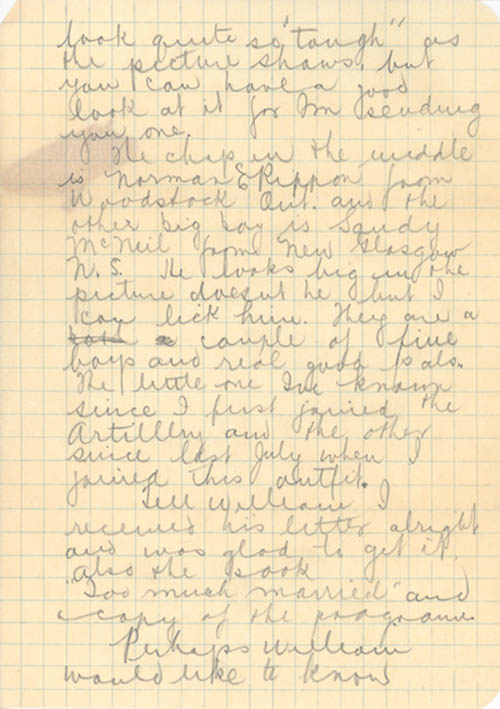 look quite so "tough" as
the picture shows, but
you can have a good
look at it for Im sending
you one.
The chap in the middle
is Norman E Rippon from
Woodstock Ont. and the
other big boy is Sandy
McNeil from New Glasgow
N.S. He looks big in the
picture doesnt he but I
can lick him. They are a
couple of fine
boys and real good pals.
The little one Ive known
since I first joined the
Artillery and the other
since last July when I
joined this outfit.
Tell William I
received his letter alright
and was glad to get it.
also the book
"Too much married" and
copy of the programe.
Perhaps William
would like to know